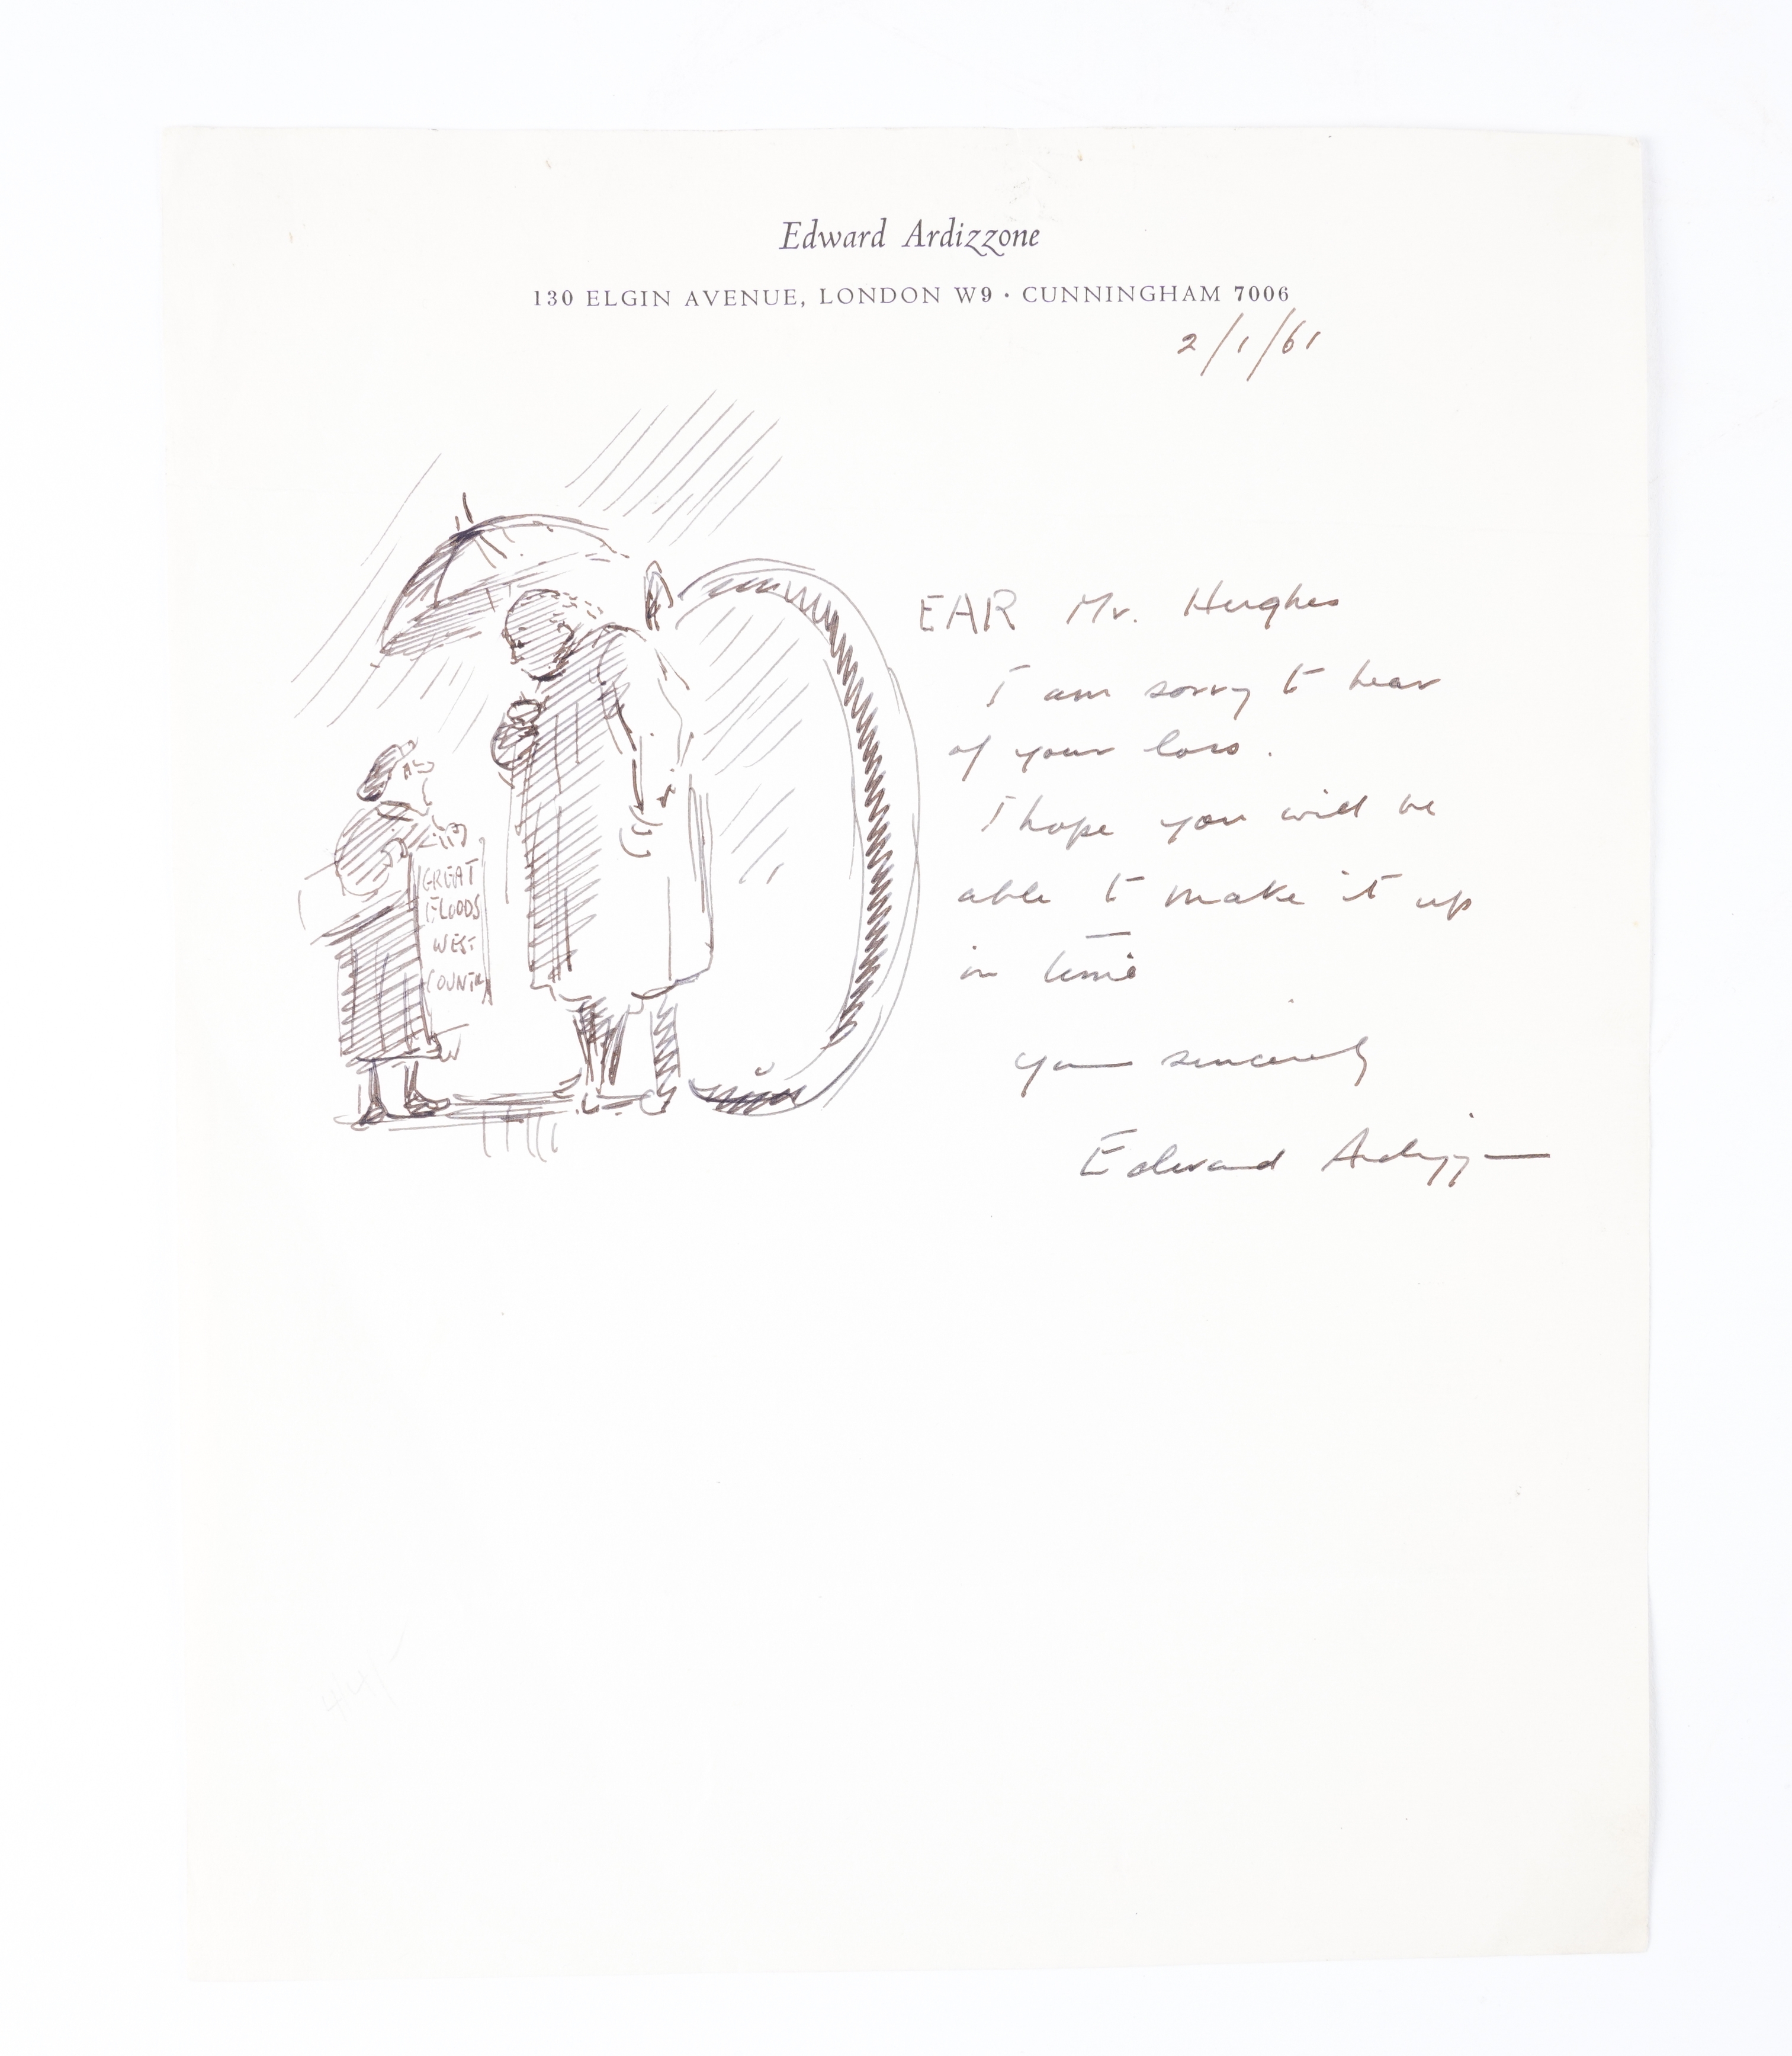 Edward Ardizzone
130 ELGIN AVENUE, LONDON W9 · CUNNINGHAM 7006
2/1/61
DEAR Mr. Hughes
I am sorry to hear
of your loss.
I hope you will be
able to make it up
in time
Yours sincerely
Edward Ardizzone
GREAT
FLOODS
WEST
COUNTRY